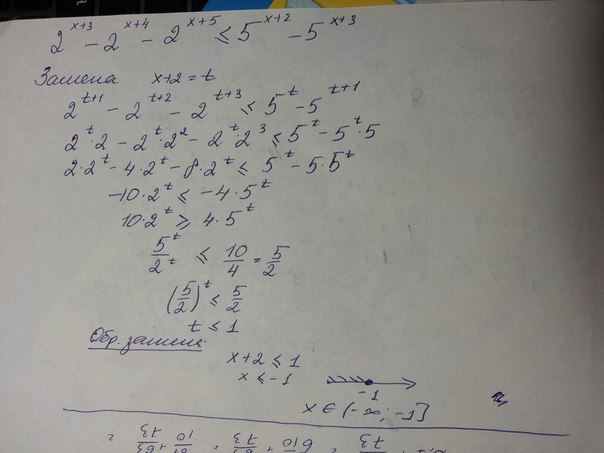 2^{x+3} - 2^{x+4} - 2^{x+5} ≤ 5^{x+2} - 5^{x+3}
Замена x+2=t
2^{t+1} - 2^{t+2} - 2^{t+3} ≤ 5^t - 5^{t+1}
2^t·2 - 2^t·2^2 - 2^t·2^3 ≤ 5^t - 5^t·5
2·2^t - 4·2^t - 8·2^t ≤ 5^t - 5·5^t
-10·2^t ≤ -4·5^t
10·2^t ≥ 4·5^t
5^t/2^t ≤ 10/4 = 5/2
(5/2)^t ≤ 5/2
t ≤ 1
Обр. замена:
x+2 ≤ 1
x ≤ -1
-1
x ∈ (-∞; -1]